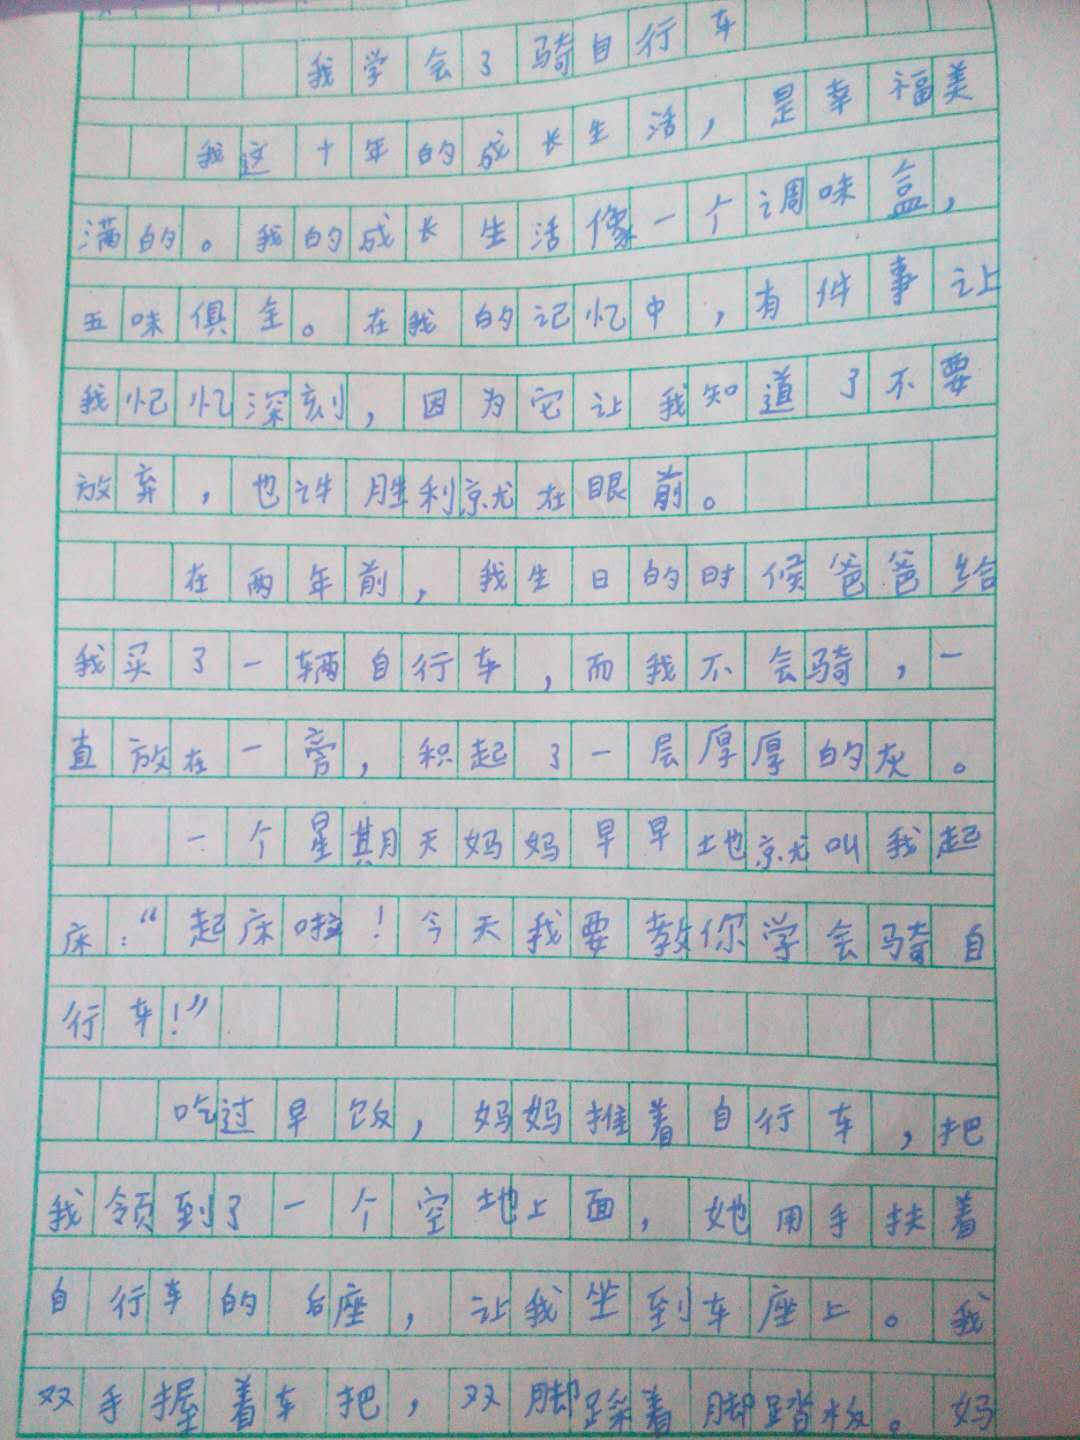 我学会了骑自行车
我这十年的成长生活，是幸福美
满的。我的成长生活像一个调味盒，
五味俱全。在我的记忆中，有件事让
我忆忆深刻，因为它让我知道了不要
放弃，也许胜利就在眼前。
在两年前，我生日的时候爸爸给
我买了一辆自行车，而我不会骑，一
直放在一旁，积起了一层厚厚的灰。
一个星期天妈妈早早地就叫我起
床：“起床啦！今天我要教你学会骑自
行车！”
吃过早饭，妈妈推着自行车，把
我领到了一个空地上面，她用手扶着
自行车的后座，让我坐到车座上。我
双手握着车把，双脚踩着脚踏板。妈